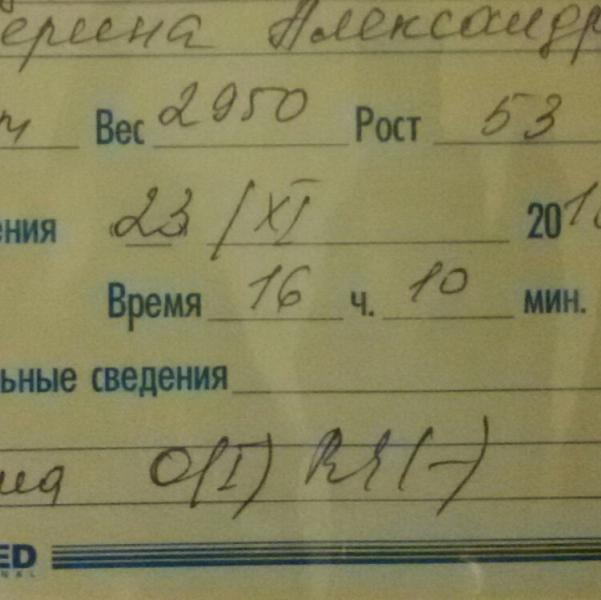 ерина Александр
м Вес 2950 Рост 53
ения 23 /XI 201
Время 16 ч. 10 мин.
ьные сведения
O(I) Rh (-)
ED